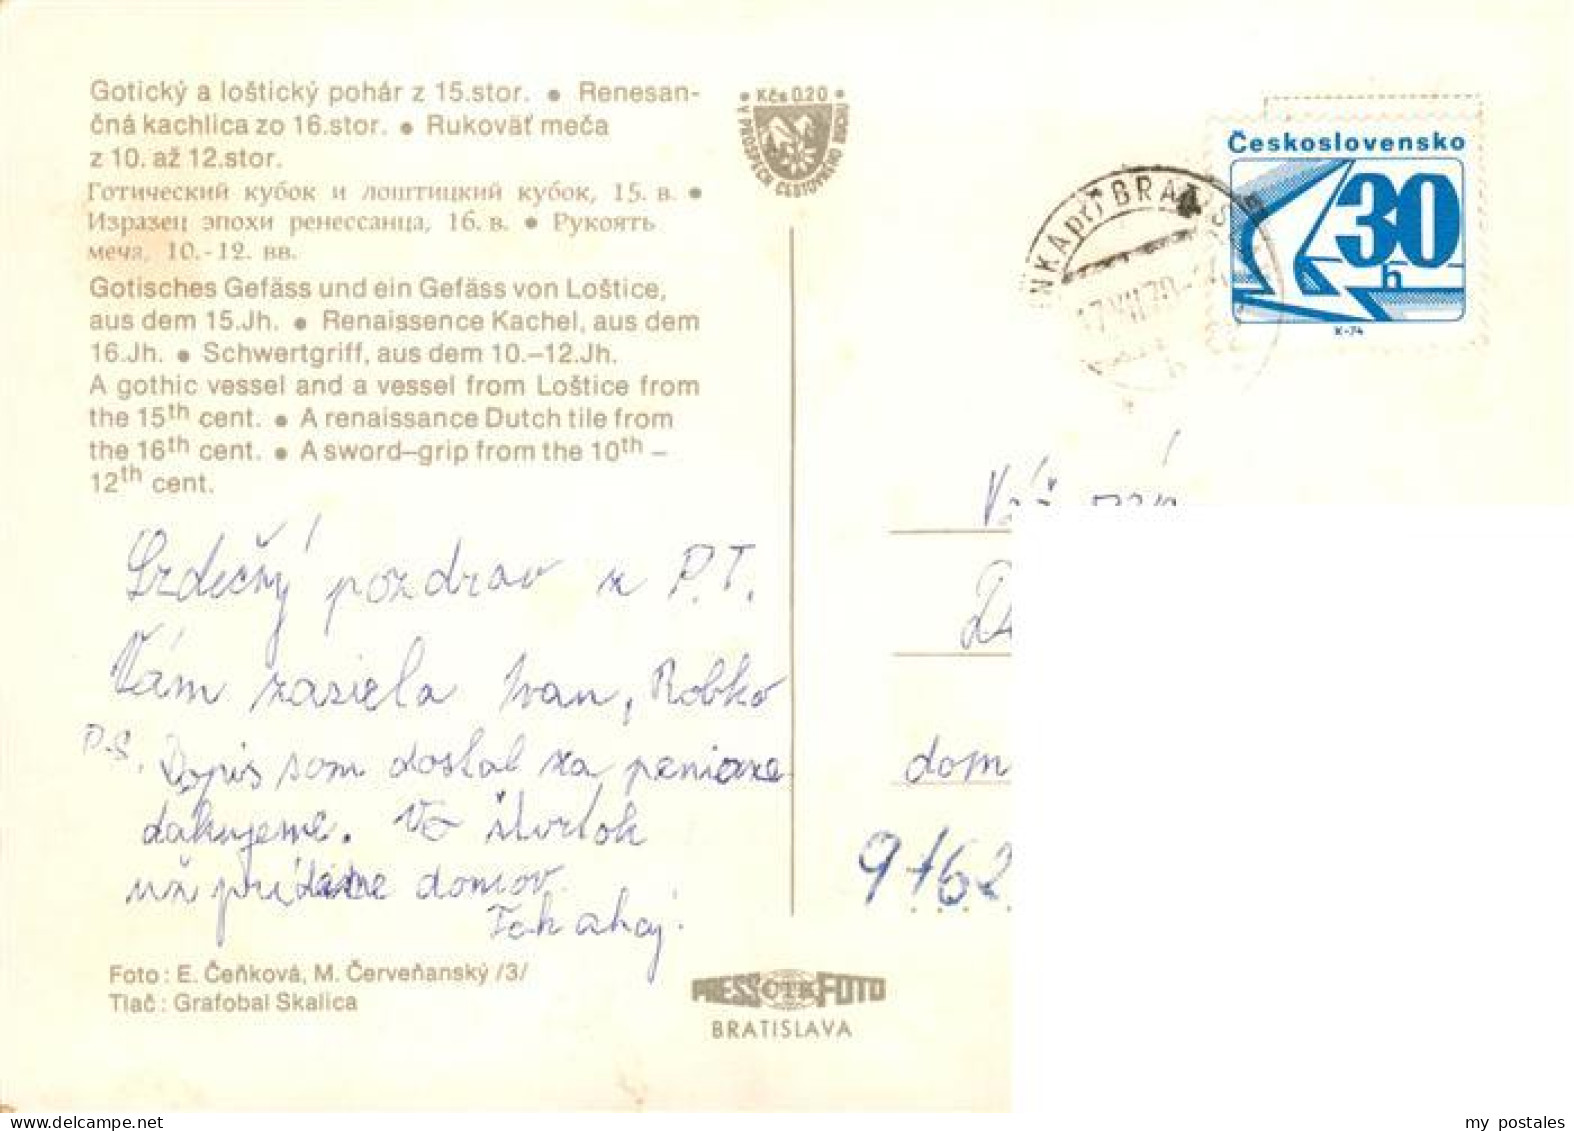 Gotický a loštický pohár z 15.stor. ● Renesan-
čná kachlica zo 16.stor. ● Rukoväť meča
z 10. až 12.stor.
Готический кубок и лоштицкий кубок, 15. в. ●
Изразец эпохи ренессанца, 16. в. ● Рукоять
меча, 10.-12. вв.
Gotisches Gefäss und ein Gefäss von Loštice,
aus dem 15.Jh. ● Renaissence Kachel, aus dem
16.Jh. ● Schwertgriff, aus dem 10.–12.Jh.
A gothic vessel and a vessel from Loštice from
the 15th cent. ● A renaissance Dutch tile from
the 16th cent. ● A sword–grip from the 10th –
12th cent.
Srdečný pozdrav z P.T.
Vám zasiela Ivan, Robko
P.S. Dopis som dostal za peniaze
ďakujeme. Vo štvrtok
už prídeme domov.
Tak ahoj!
Foto: E. Čeňková, M. Červeňanský /3/
Tlač: Grafobal Skalica
PRESS ČTK FOTO
BRATISLAVA
● Kčs 0.20 ●
V PROSPECH CESTOVNÉHO RUCHU
Československo
30
h
K-74
NKA pri BRATIS
17.VII.78
dom
9162
my postales
www.delcampe.net